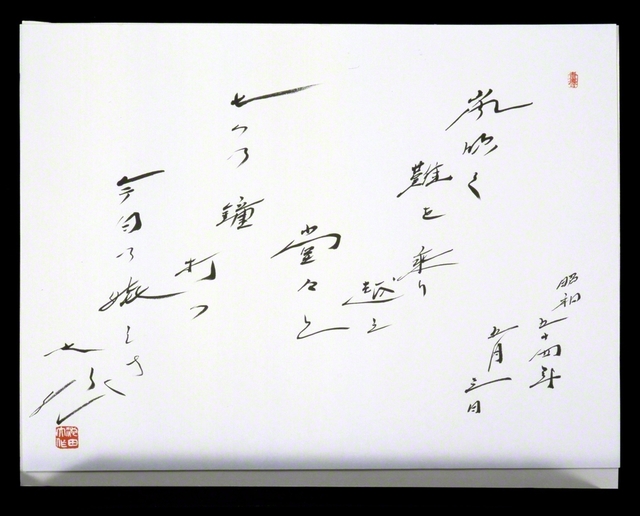 昭和五十四年
五月三日
嵐吹く
難を乗り
越え
堂々と
七つの鐘
打つ
今日の嬉しさ